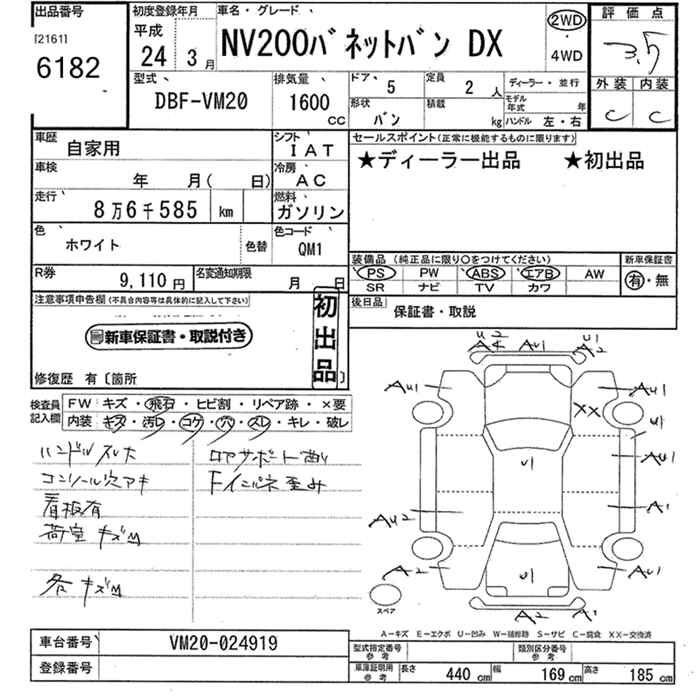 出品番号
[2161]
6182
初度登録年月
平成
24年 3月
車名・グレード
NV200バネットバン DX
2WD
・
4WD
評価点
3.5
外装 内装
C C
型式
DBF-VM20
排気量
1600
CC
ドア 5
定員 2人
ディーラー・並行
形状 バン
積載 kg
モデル年式 年
ハンドル 左・右
車歴 自家用
シフト IAT
車検 年 月( 日)
冷房 AC
走行 8万6千585 km
燃料 ガソリン
色 ホワイト 色替
色コード QM1
R券 9,110円
名変通知期限 月 日
セールスポイント(正常に機能するものに限ります)
★ディーラー出品 ★初出品
装備品(純正品に限り○をつけてください)
新車保証書
PS PW ABS エアB AW
SR ナビ TV カワ
有・無
後日品 保証書・取説
注意事項申告欄(不具合内容等は具体的に記入して下さい)
新車保証書・取説付き
初出品
修復歴 有〔箇所 〕
検査員記入欄
FW キズ・飛石・ヒビ割・リペア跡・×要
内装 キズ・汚レ・コゲ・穴・スレ・キレ・破レ
ハンドルスレ大
コンソール穴アキ
看板有
荷室キズM
各キズM
ロアサポート曲り
Fインパネ歪み
U2 A4 AU1 U1 A2
AU1 AU1
XX
U1
U1 AU1
AU2 A1
A2 U1 A2
A2 A1
スペア
A-キズ E-エクボ U-凹み W-補修跡 S-サビ C-腐食 XX-交換済
車台番号 VM20-024919
登録番号
型式指定番号 参考
類別区分番号 参考
車庫証明用 参考
長さ 440cm 幅 169cm 高さ 185cm